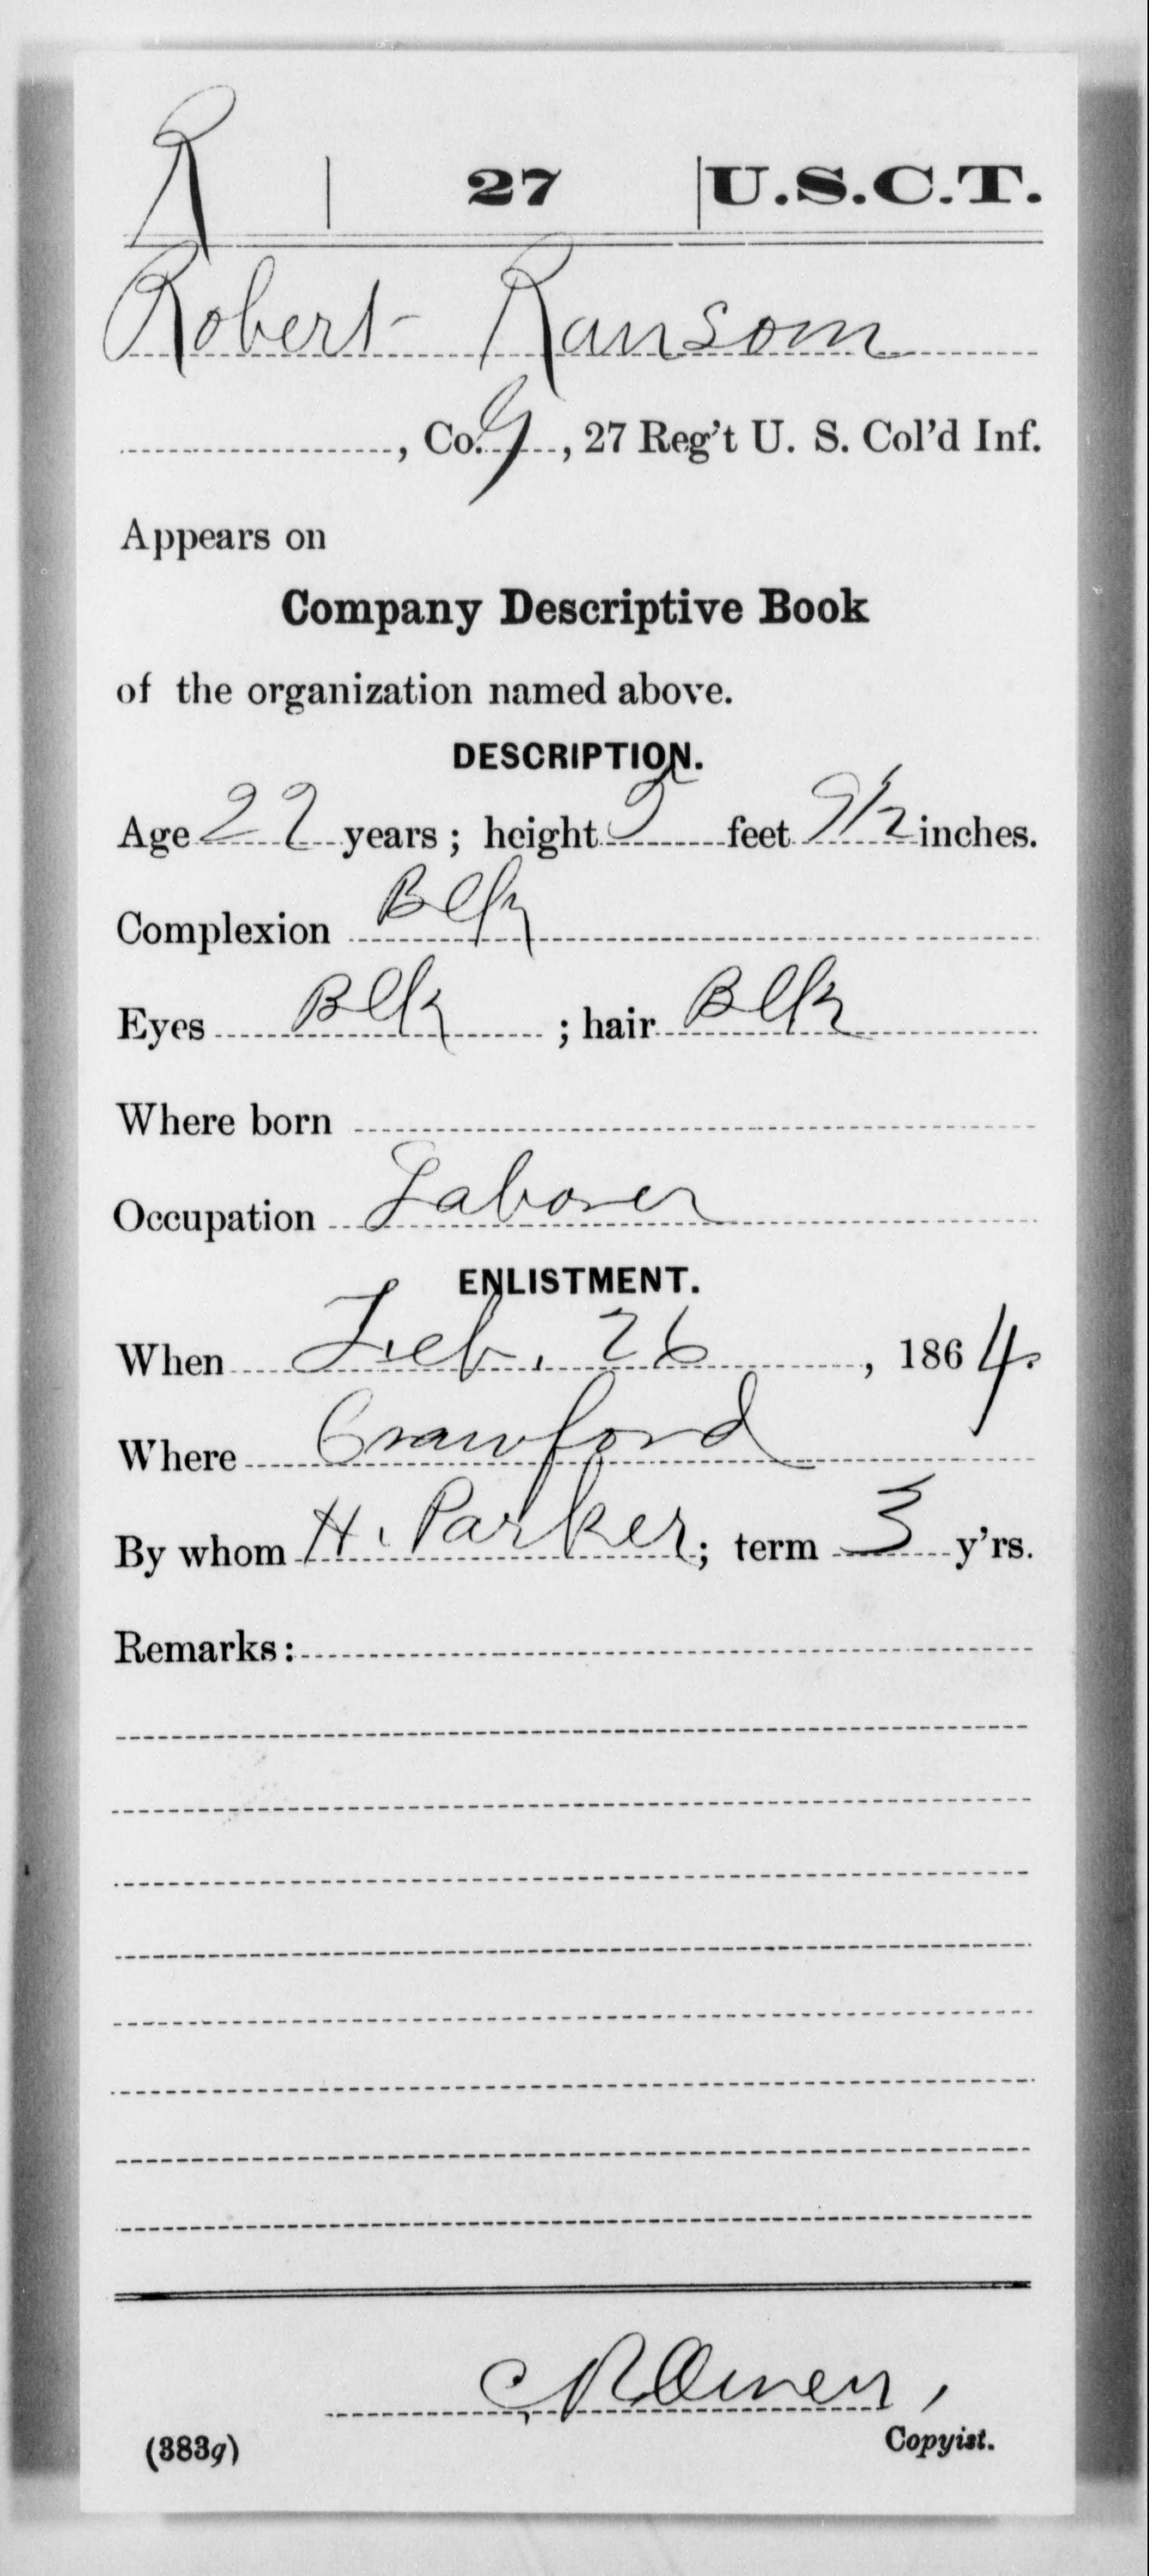 R | 27 | U.S.C.T.
Robert Ransom
, Co. G, 27 Reg't U. S. Col'd Inf.
Appears on
Company Descriptive Book
of the organization named above.
DESCRIPTION.
Age 22 years; height 5 feet 9 1/2 inches.
Complexion Blk
Eyes Blk; hair Blk
Where born
Occupation Laborer
ENLISTMENT.
When Feb. 26, 1864.
Where Crawford
By whom H. Parker; term 3 y'rs.
Remarks:
(383g) Copyist.